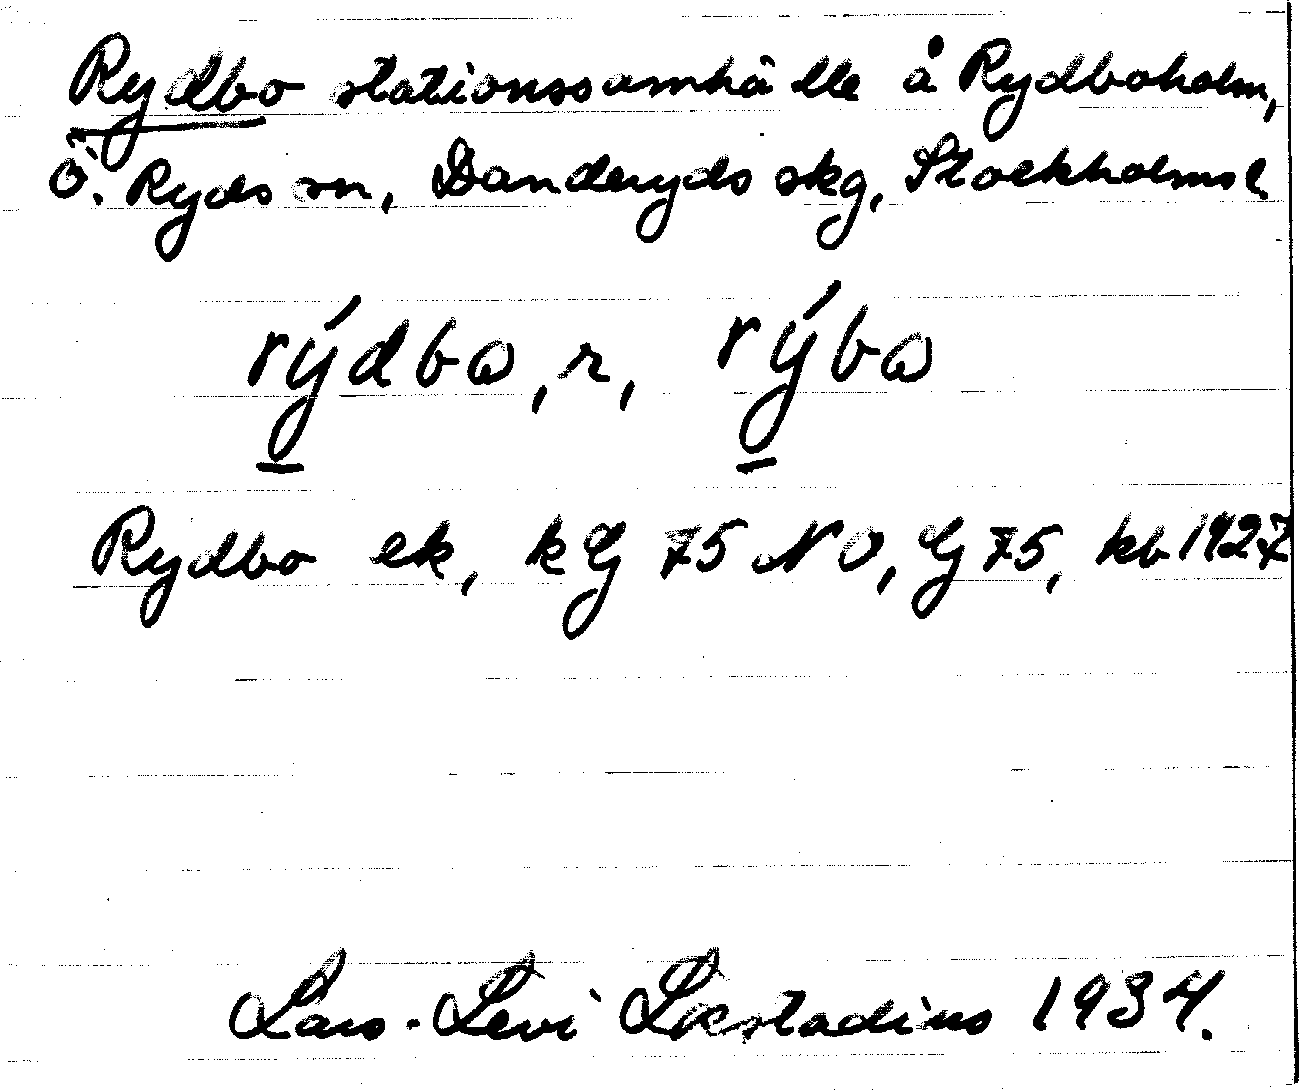 Rydbo stationssamhälle å Rydboholm,
Ö. Ryds sn, Danderyds skg, Stockholms l.
rýdbω, r, rýbω
Rydbo ek, kG 75 NO, G 75, kb 1927
Lars-Levi Læstadius 1934.